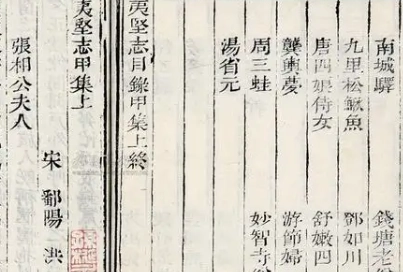 南城驛 錢塘老
九里松鰍魚 鄧如川
唐四娘侍女 舒嫩四
龔輿夢 游師婦
周三蛙 妙智寺
湯省元
夷堅志目錄甲集上終
夷堅志甲集上
宋 鄱陽 洪
張相公夫人